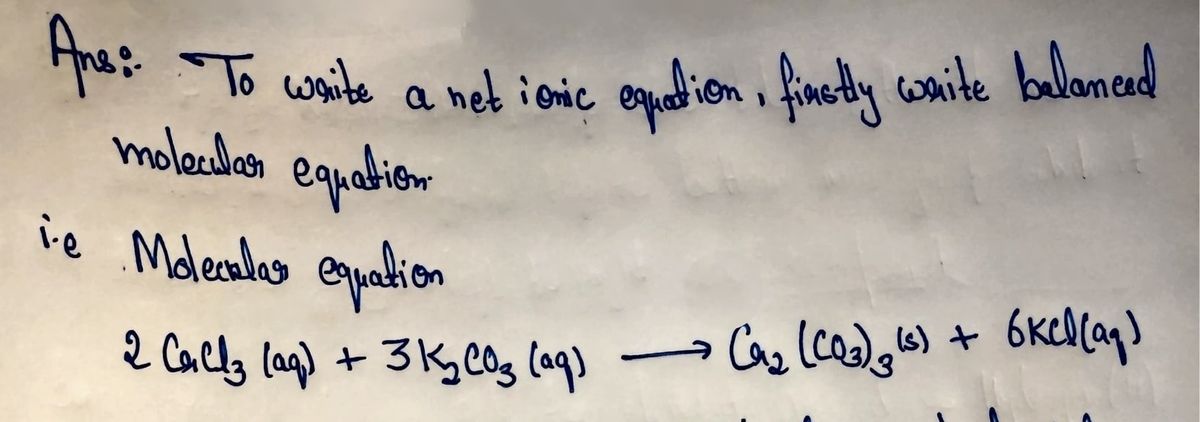 Ans:- To write a net ionic equation, firstly write balanced
molecular equation.
i.e Molecular equation
2 CrCl₃ (aq) + 3 K₂CO₃ (aq) ⟶ Cr₂(CO₃)₃ (s) + 6KCl(aq)